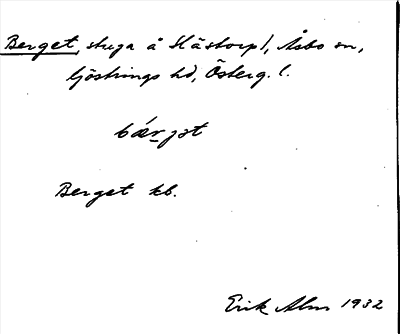 Berget, stuga å Hästorp l, Åsbo sn,
Göstrings hd, Österg. l.
bǽrjət
Berget kb.
Erik Alm 1932